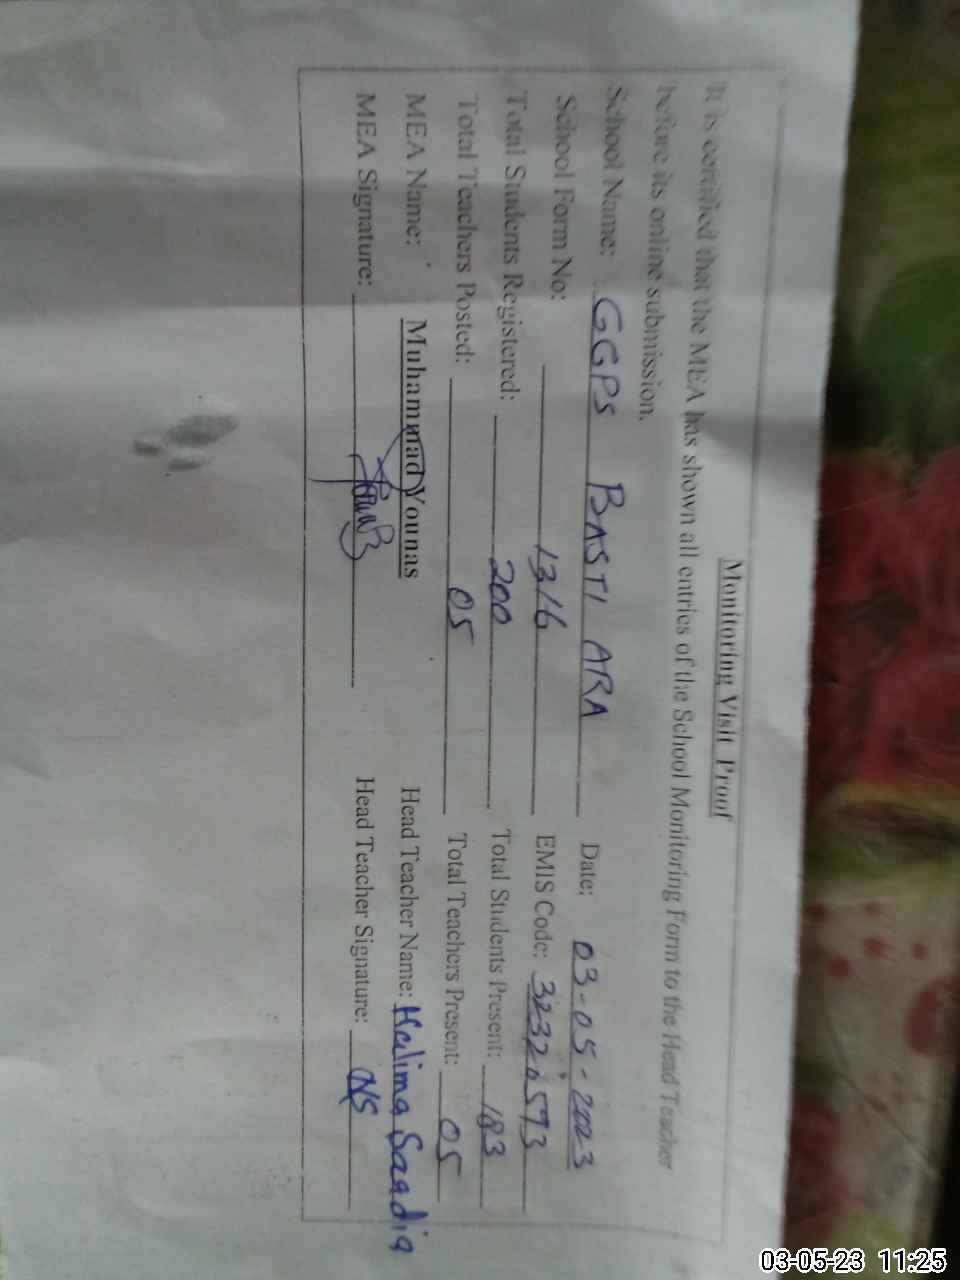 Monitoring Visit Proof
It is certified that the MEA has shown all entries of the School Monitoring Form to the Head Teacher
before its online submission.
School Name: GGPS BASTI ARA Date: 03-05-2023
School Form No: 1316 EMIS Code: 32320593
Total Students Registered: 200 Total Students Present: 183
Total Teachers Posted: 05 Total Teachers Present: 05
MEA Name: Muhammad Younas Head Teacher Name: Halima Saadia
MEA Signature: Head Teacher Signature:
03-05-23 11:25